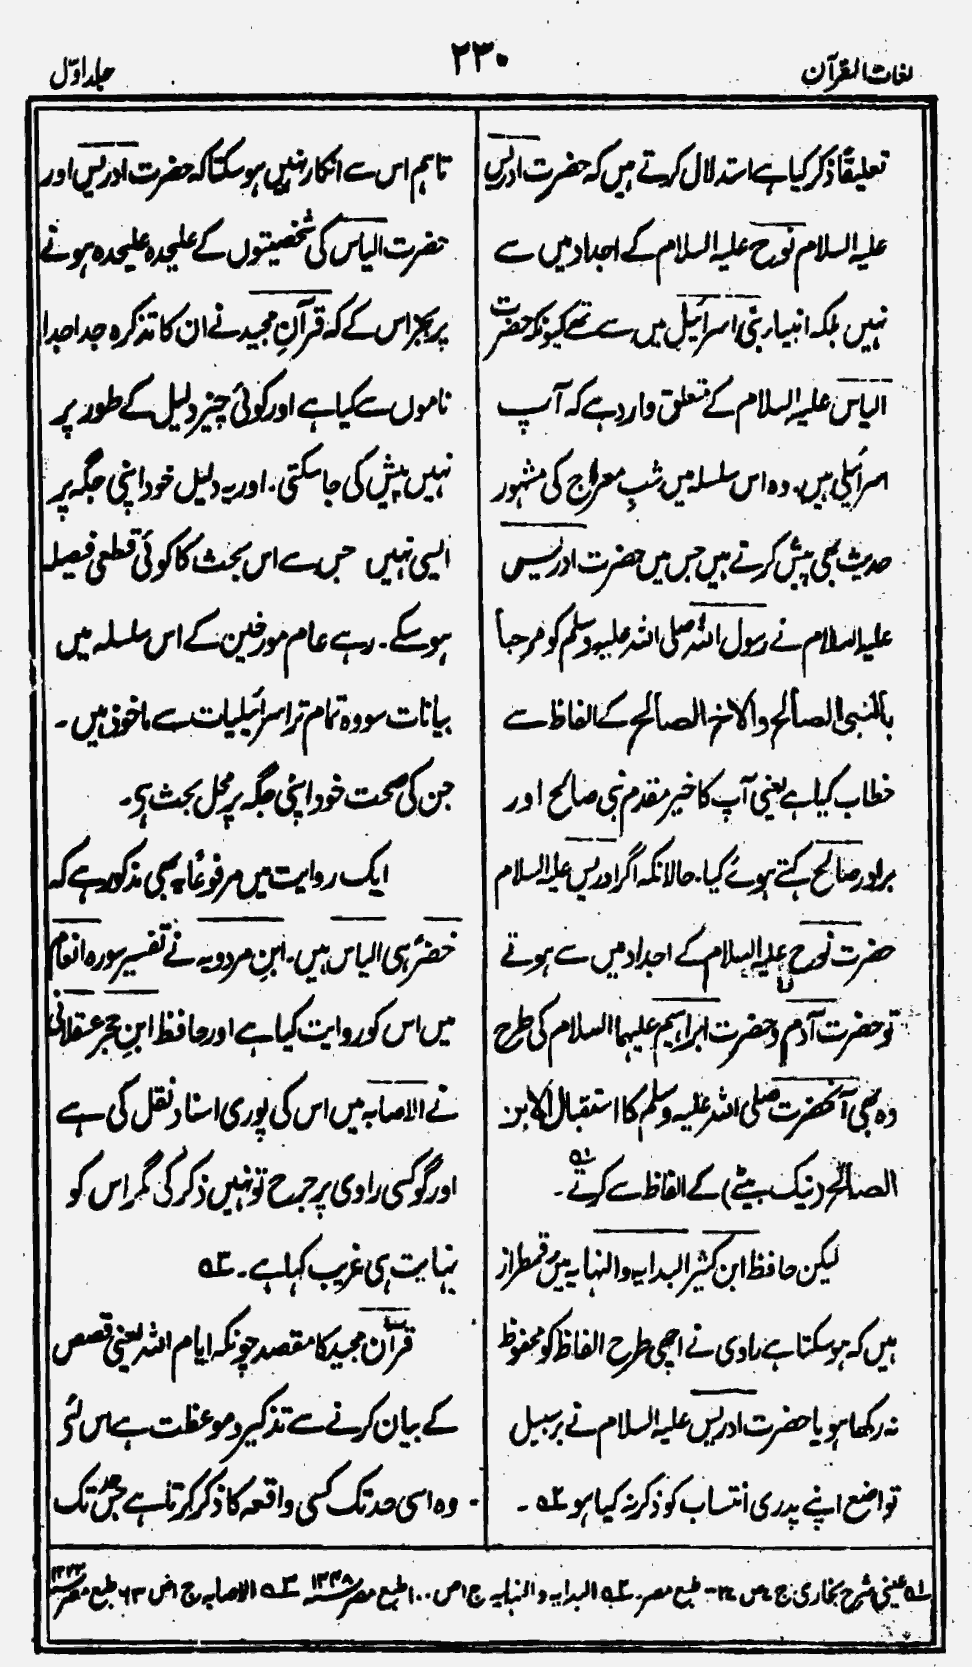 لغات القرآن
۲۳۰
جلد اوّل
تعلیقاً ذکر کیا ہے استدلال کرتے ہیں کہ حضرت ادریس
علیہ السلام نوح علیہ السلام کے اجداد میں سے
نہیں بلکہ انبیاء بنی اسرائیل میں سے تھے کیونکہ حضرت
الیاس علیہ السلام کے متعلق وارد ہے کہ آپ
اسرائیلی ہیں۔ وہ اس سلسلہ میں شبِ معراج کی مشہور
حدیث بھی پیش کرتے ہیں جس میں حضرت ادریس
علیہ السلام نے رسول اللہ صلی اللہ علیہ وسلم کو مرحباً
بالنبی الصالح والاخ الصالح کے الفاظ سے
خطاب کیا ہے یعنی آپ کا خیر مقدم نبی صالح اور
برادر صالح کہتے ہوئے کیا۔ حالانکہ اگر ادریس علیہ السلام
حضرت نوح علیہ السلام کے اجداد میں سے ہوتے
تو حضرت آدم و حضرت ابراہیم علیہما السلام کی طرح
وہ بھی آنحضرت صلی اللہ علیہ وسلم کا استقبال الابن
الصالح (نیک بیٹے) کے الفاظ سے کرتے ۱؎۔
لیکن حافظ ابن کثیر البدایہ والنہایہ میں رقمطراز
ہیں کہ ہوسکتا ہے راوی نے اچھی طرح الفاظ کو محفوظ
نہ رکھا ہو یا حضرت ادریس علیہ السلام نے برسبیل
تواضع اپنے پدری انتساب کو ذکر نہ کیا ہو ۲؎۔
تاہم اس سے انکار نہیں ہوسکتا کہ حضرت ادریس اور
حضرت الیاس کی شخصیتوں کے علیحدہ علیحدہ ہونے
پر بجز اس کے کہ قرآنِ مجید نے ان کا تذکرہ جدا جدا
ناموں سے کیا ہے اور کوئی چیز دلیل کے طور پر
نہیں پیش کی جاسکتی۔ اور یہ دلیل خود اپنی جگہ پر
ایسی نہیں جس سے اس بحث کا کوئی قطعی فیصلہ
ہوسکے۔ رہے عام مورخین کے اس سلسلہ میں
بیانات سو وہ تمام تر اسرائیلیات سے ماخوذ ہیں۔
جن کی صحت خود اپنی جگہ پر محل بحث ہی۔
ایک روایت میں مرفوعًا یہ بھی مذکور ہے کہ
خضرؑ ہی الیاس ہیں۔ ابنِ مردویہ نے تفسیر سورہ انعام
میں اس کو روایت کیا ہے اور حافظ ابنِ حجر عسقلانی
نے الاصابہ میں اس کی پوری اسناد نقل کی ہے
اور گو کسی راوی پر جرح تو نہیں ذکر کی مگر اس کو
نہایت ہی غریب کہا ہے۔ ۳؎
قرآن مجید کا مقصد چونکہ ایام اللہ یعنی قصص
کے بیان کرنے سے تذکیر و موعظت ہے اس لئے
وہ اسی حد تک کسی واقعہ کا ذکر کرتا ہے جس حد تک
۱؎ عینی شرح بخاری ج ص طبع مصر۔ ۲؎ البدایہ والنہایہ ج ۱ ص ۱۰۰ طبع مصر ۱۳۴۸ ۳؎ الاصابہ ج ۱ ص ۶۳ طبع مصر